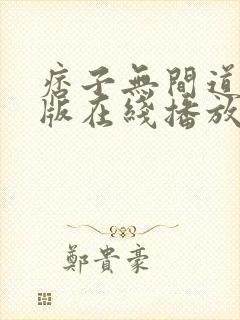 痞子無間道
版在綫播放
鄭貴豪